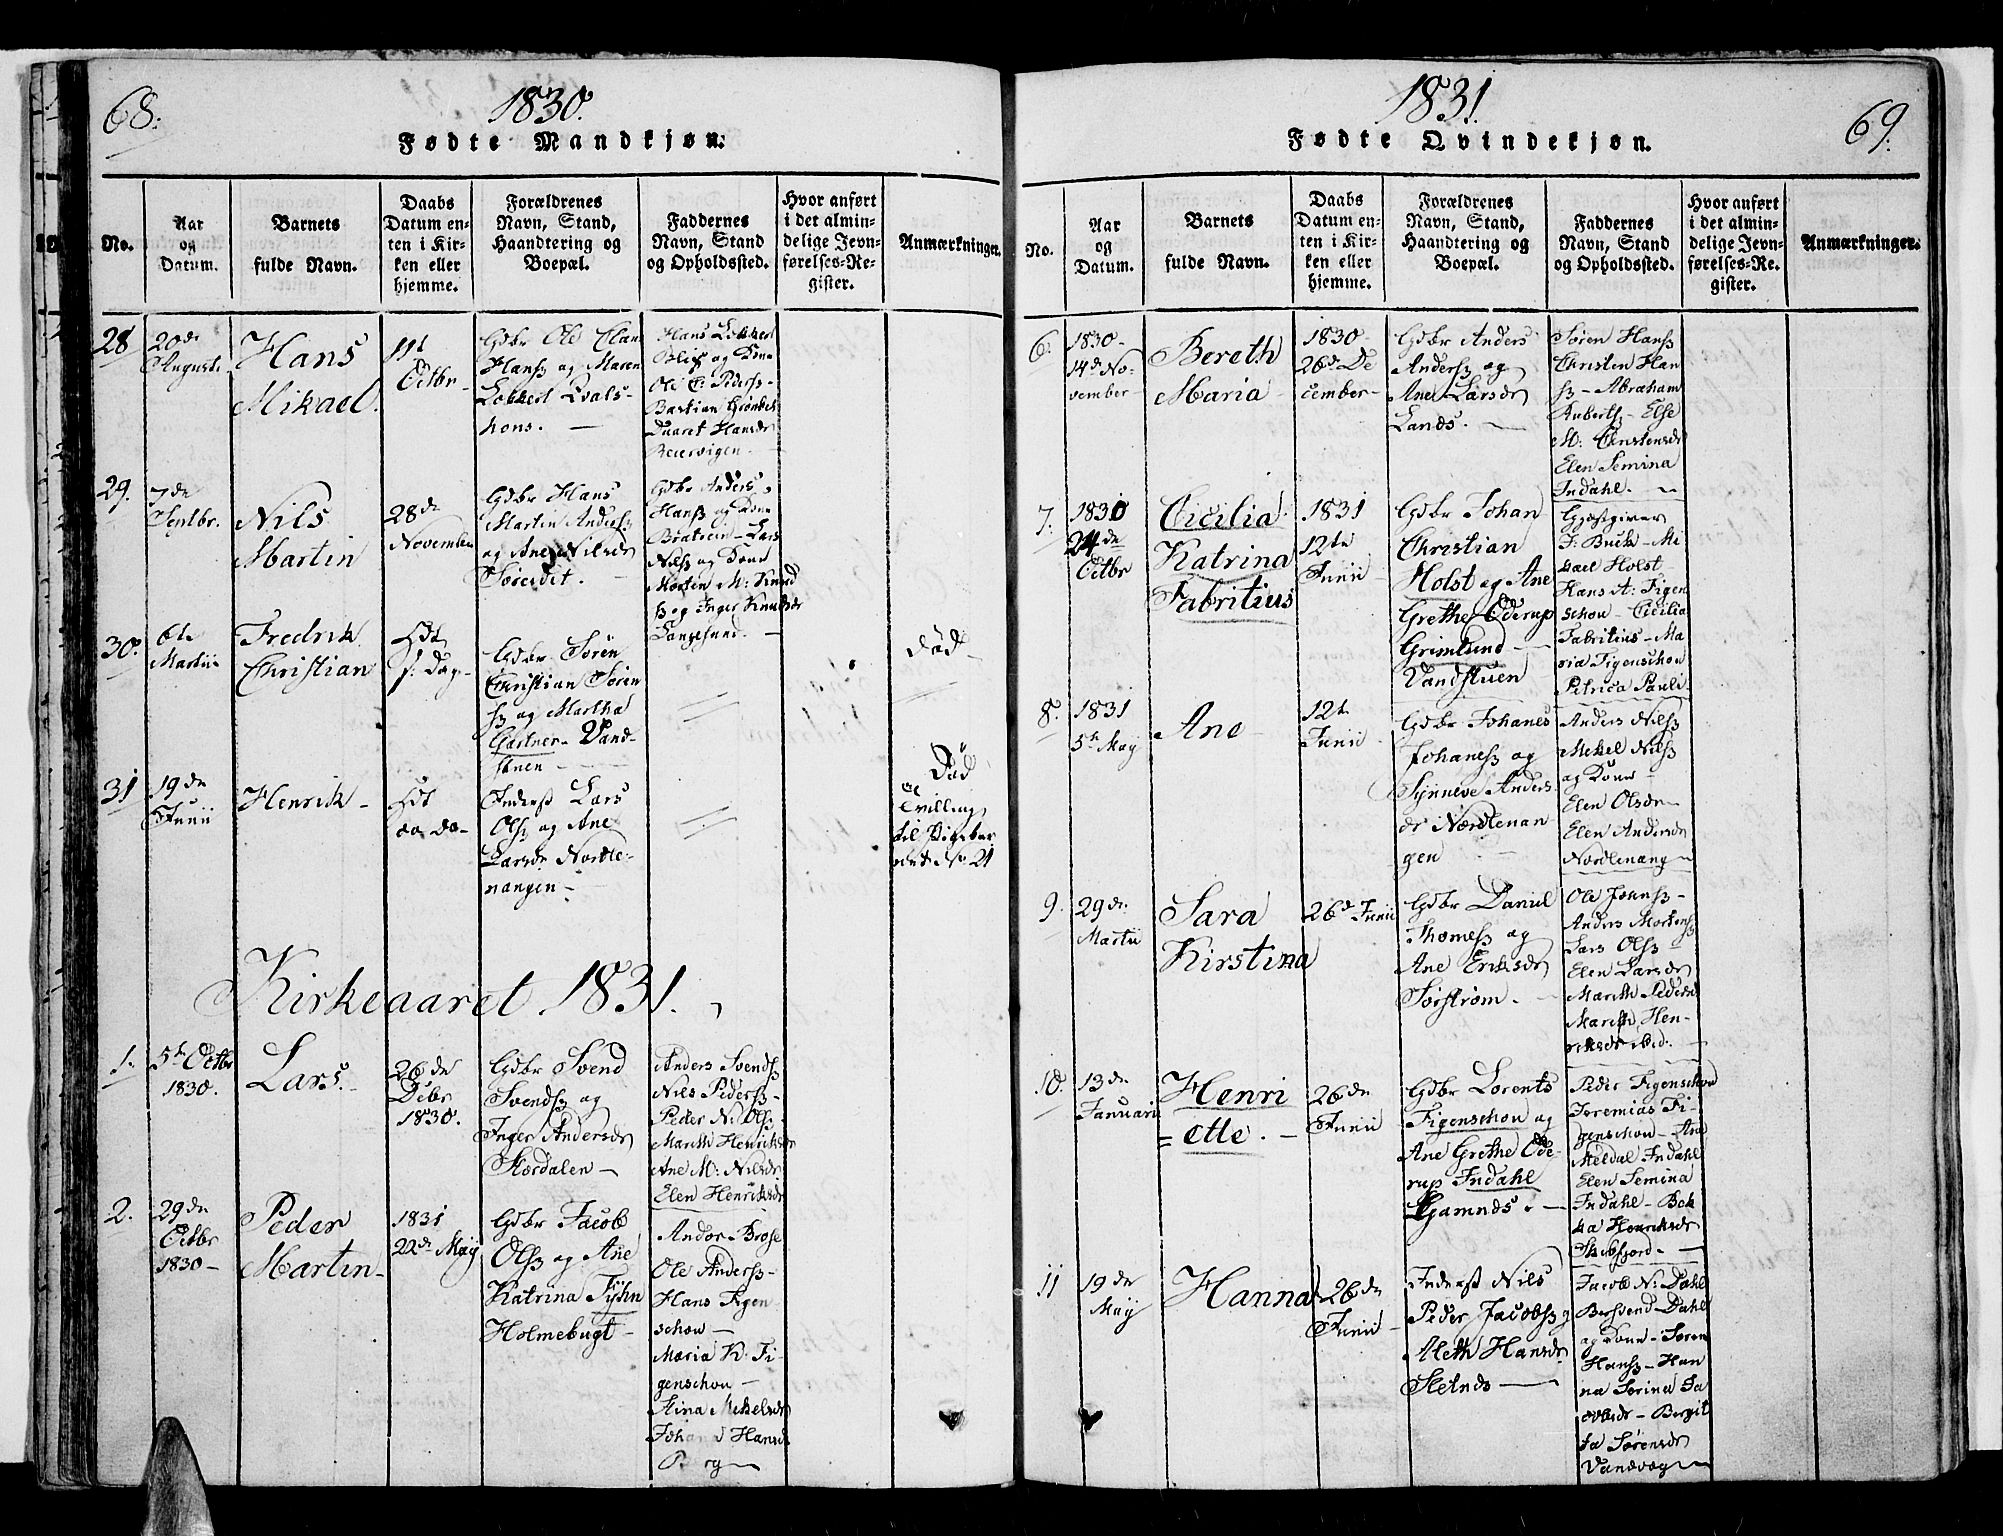 68.
1830.
Fødte Mandkjøn.
No.
Aar
og
Datum.
Barnets
fulde Navn.
Daabs
Datum en-
ten i Kir-
ken eller
hjemme.
Forældrenes
Navn, Stand,
Haandtering og
Boepæl.
Faddernes
Navn, Stand
og Opholdssted.
Hvor anført
i det almin-
delige Jevn-
førelses-Re-
gister.
Anmærkninger.
28
20de
Augusti
Hans
Mikael.
11t
Octbr
Gdbr Ole Clau
Hansß og Maren
Lokkert Qvals-
hons.
Hans Lokkert
og Kone
Ole C: Pederß
Bastian Grønbek
Hansdr
29.
7de
Septbr.
Nils
Martin
28de
November
Gdbr Hans
Martin Andersß
og Ane Nilsdr
Søreidet.
Gdbr Anders
Hansß og Kone
Lars
Nilsß og Kone
Morten M: Knud
ß og Inger Knudsdr
Langesund.
30.
6te
Martii
Fredrik
Christian
f: Dag
Gdbr Søren
Christian Søren
ß og Martha
Gartner Vand-
stuen
Død
31
19de
Junii
Henrik
do do
Inderst Lars
Olsß og Ane
Larsdr Nordle-
nangen
Død
er
Tvilling
til Pigebar
net No 21
Kirkeaaret 1831.
1.
5t Octbr
1830.
Lars.
26de
Debr
1830.
Gdbr Svend
Svendsß og
Inger Andersdr
Stordalen
Anders Svendsß
Nils Pedersß
Peder N: Olsß
Mareth Henriksdr
Ane M: Nilsdr
Elen Henriksdr
2.
29de
Octbr
1830
Peder
Martin
1831
22de May
Gdbr Jacob
Olsß og Ane
Katrina Fyhn
Holmebugt
Andor Brose
Ole Andersß
Hans Figen-
schou
Maria K. Fi-
genschou
Stina Mekelsdr
Hansdr
69.
1831.
Fødte Qvindekjøn.
No.
Aar
og
Datum.
Barnets
fulde Navn.
Daabs
Datum en-
ten i Kir-
ken eller
hjemme.
Forældrenes
Navn, Stand,
Haandtering og
Boepæl.
Faddernes
Navn, Stand
og Opholdssted.
Hvor anført
i det almin-
delige Jevn-
førelses-Re-
gister.
Anmærkninger.
6.
1830
14de No-
vember
Bereth
Maria
1830
26de De
cember
Gdbr Anders
Andersß og
Ane Larsdr
Lands.
Søren Hansß
Christen Han
ß Abraham
Rubertß Else
M: Christensdr
Elen Semina
Indahl.
7.
1830
24de
Octbr
Cicilia
Katrina
Fabritius
1831
12te
Junii
Gdbr Johan
Christian
Holst og Ane
Grethe Oderup
Grimlund
Vandstuen
Gjæstgiver
J: Buck Mi
kael Holst
Hans A: Figen
schou Cicilia
Fabritius Ma
ria Figenschou
Petrica Pauli
8.
1831
5te May
Ane
12te
Junii
Gdbr Johanes
Johanesß og
Synneve Anders
dr Nordlenan
gen
Anders Nilsß
Mekel Nilsß
og Kone
Elen Olsdr
Elen Andersdr
Nordlenang
9.
29de
Martii
Sara
Kirstina
26de Junii
Gdbr Daniel
Thomesß og
Ane Eriksdr
Sørstrøm.
Ole Johnsß
Anders Mortensß
Lars Olsß
Elen Larsdr
Mareth Pedersd
Mareth Hen-
riksdr ibid.
10.
13de
Januari
Henri
=ette.
26de
Junii
Gdbr Lorents
Figenschou og
Ane Grethe Ode-
rup Indahl
Gamnes.
Peder Figenschou
Jeremias Fi-
genschou Ane
Meldal Indahl
Elen Semina
Indahl
Henriksdr
Skibfjord
11
19de
May
Hanna
26de
Junii
Inderst Nils
Peder Jacobsß og
Aleth Hansdr
Sletnes
Jacob N: Dahl
Bersvend Dahl
og Kone Søren
Hansß Han
na Sørine Ja
cobsdr Bergit
ta Sørensdr
Vandvog